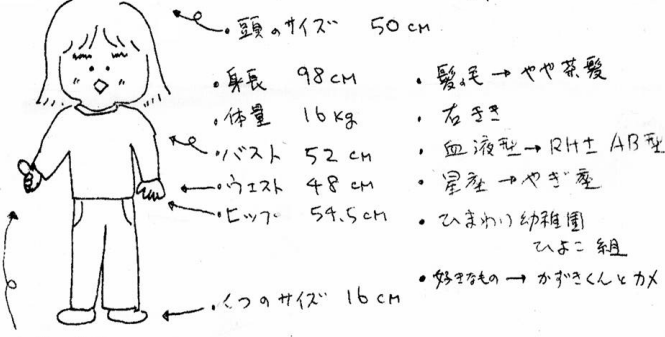 ・頭のサイズ 50cm
・身長 98cm
・体重 16kg
・バスト 52cm
・ウエスト 48cm
・ヒップ 54.5cm
・くつのサイズ 16cm
・髪の毛→やや茶髪
・右きき
・血液型→RH± AB型
・星座→やぎ座
・ひまわり幼稚園
ひよこ組
・好きなもの→かずきくんとカメ